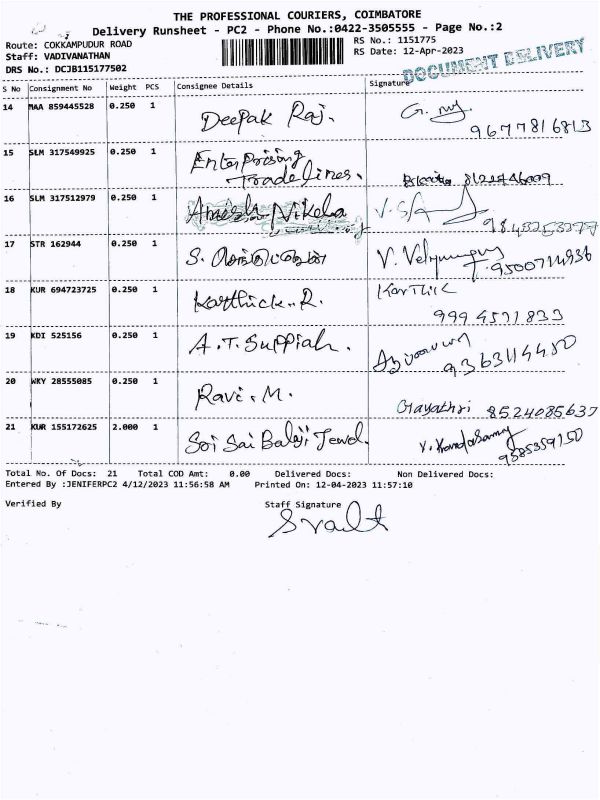 THE PROFESSIONAL COURIERS, COIMBATORE
Delivery Runsheet - PC2 - Phone No.:0422-3505555 - Page No.:2
Route: COKKAMPUDUR ROAD
Staff: VADIVANATHAN
DRS No.: DCJB115177502
RS No.: 1151775
RS Date: 12-Apr-2023
DOCUMENT DELIVERY
S No Consignment No Weight PCS Consignee Details Signature
14 MAA 859445528 0.250 1 Deepak Raj.
9677816813
15 SLM 317549925 0.250 1 Enterprising
Tradelines.
16 SLM 317512979 0.250 1 Nikela
17 STR 162944 0.250 1 S.
V.
18 KUR 694723725 0.250 1 Karthick. R. Karthik
19 KDI 525156 0.250 1 A.T. Suppiah.
20 WKY 28555085 0.250 1 Ravi. M.
Gayathri 8524085637
21 KUR 155172625 2.000 1 Sri Sai Balaji Jewel. V. Kandasamy
9585359150
Total No. Of Docs: 21 Total COD Amt: 0.00 Delivered Docs: Non Delivered Docs:
Entered By :JENIFERPC2 4/12/2023 11:56:58 AM Printed On: 12-04-2023 11:57:10
Verified By Staff Signature